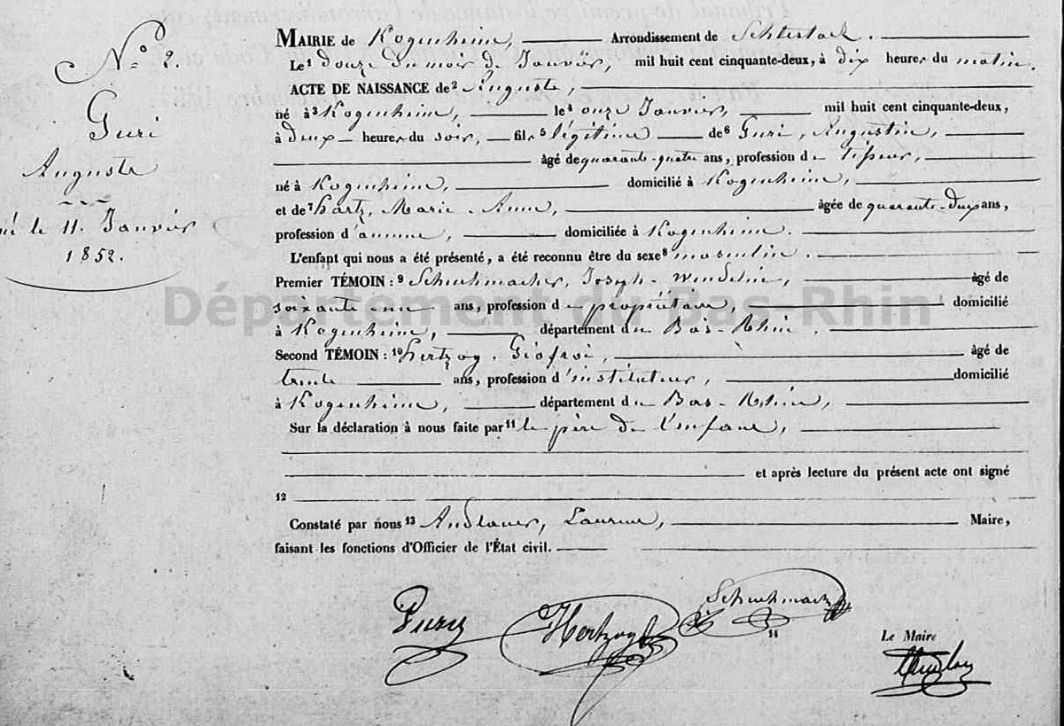 N.° 2.
Guri
Auguste
né le 11. Janvier
1852.
MAIRIE de Kogenheim, Arrondissement de Schlestadt.
Le¹ douze du mois de Janvier, mil huit cent cinquante-deux, à dix heures du matin.
ACTE DE NAISSANCE de² Auguste,
né à³ Kogenheim, le⁴ onze Janvier, mil huit cent cinquante-deux,
à deux heures du soir, fils⁵ légitime de⁶ Guri, Augustin,
âgé de quarante-quatre ans, profession de
né à Kogenheim, domicilié à Kogenheim,
et de⁷ hartz, Marie-Anne, âgée de quarante-deux ans,
profession d'aucune, domiciliée à Kogenheim.
L'enfant qui nous a été présenté, a été reconnu être du sexe⁸ masculin.
Premier TÉMOIN : ⁹ Schuhmacher, Joseph-Wendelin, âgé de
soixante ans, profession de propriétaire domicilié
à Kogenheim, département du Bas-Rhin.
Second TÉMOIN : ¹⁰ hertzog, Géofroi, âgé de
trente ans, profession d'instituteur, domicilié
à Kogenheim, département du Bas-Rhin,
Sur la déclaration à nous faite par¹¹ le père de l'enfant,
et après lecture du présent acte ont signé
12
Constaté par nous ¹³ Andlauer, Laurent, Maire,
faisant les fonctions d'Officier de l'État civil.
Hertzog Schuhmacher
14
Le Maire
Département du Bas-Rhin